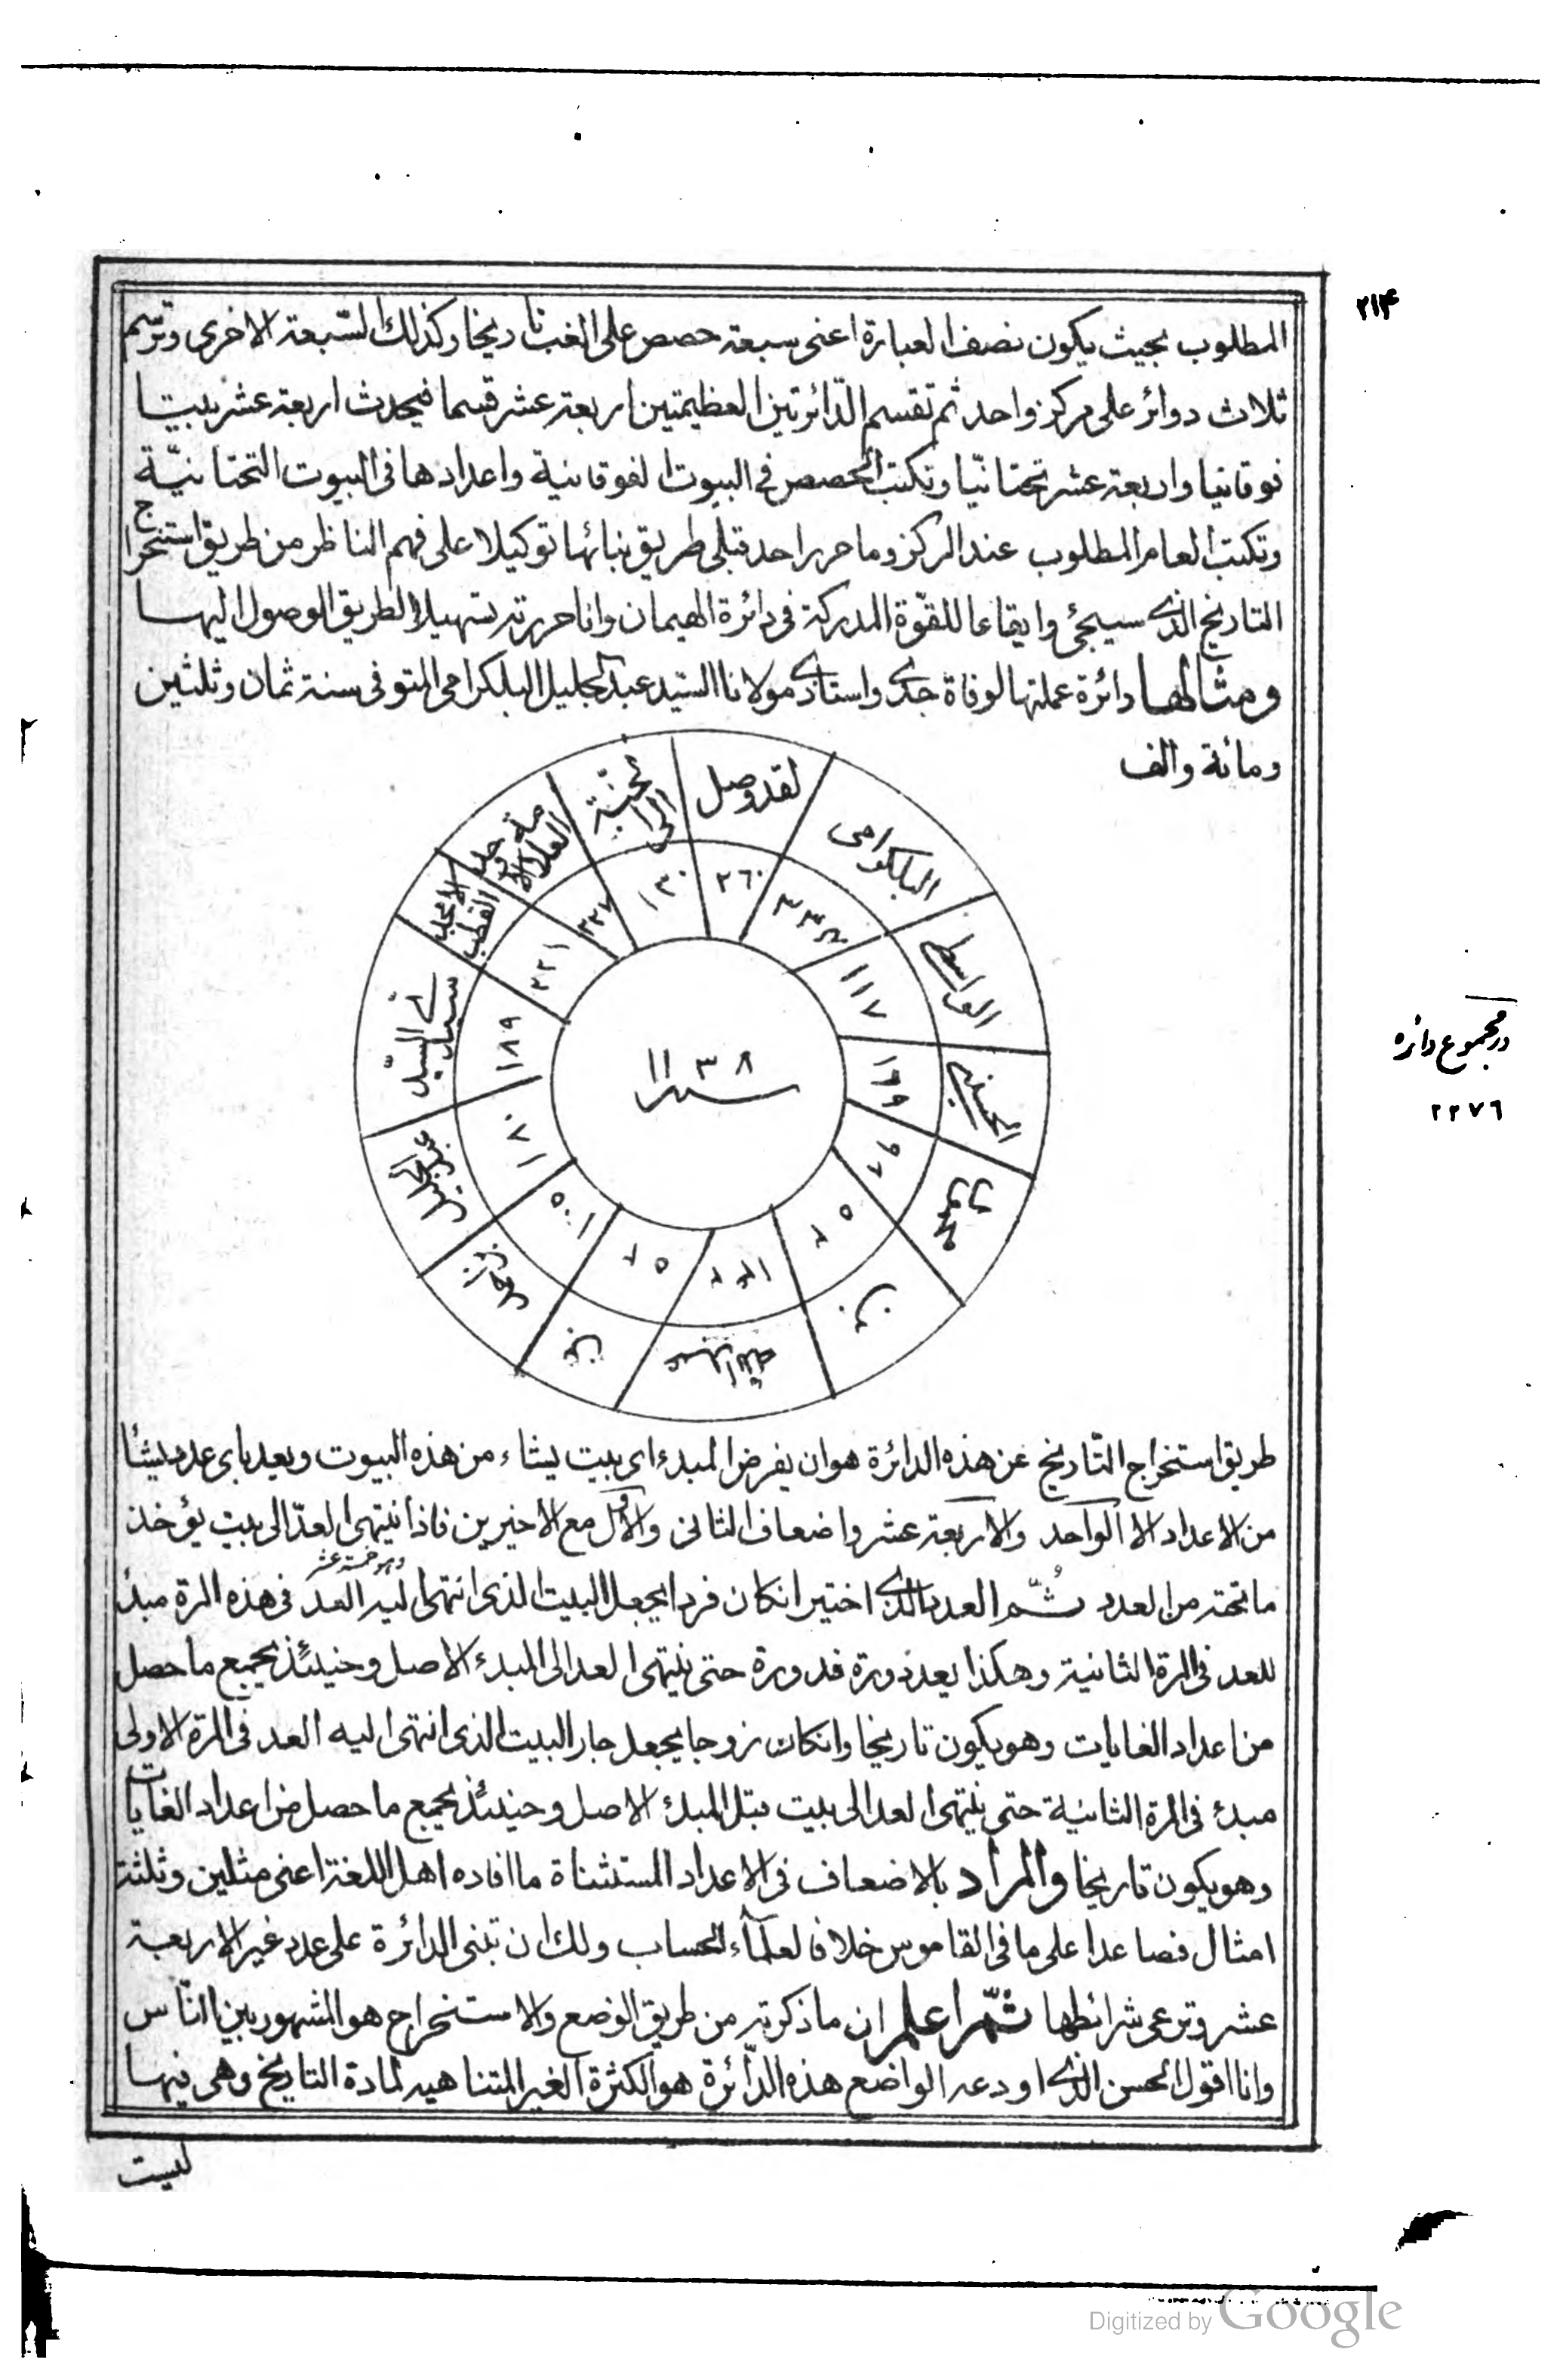 ٢١۴
المطلوب بحيث يكون نصف العبارة اعنى سبعة حصص على الغب تاريخا وكذلك السّبعة الاخرى وترسم
ثلاث دوائر على مركز واحد ثم تقسم الدّائرتين العظيمتين اربعة عشر قسما فيحدث اربعة عشر بيتا
فوقانيا واربعة عشر تحتانيّا وتكتب الحصص فى البيوت الفوقانية واعدادها فى البيوت التحتانيّة
وتكتب العام المطلوب عند المركز وما حرر احد قبلى طريق بنائها توكيلا على فهم الناظر من طريق استخراج
التاريخ الذى سيجئ وايقاعا للقوّة المدركة فى دائرة الهيمان وانا حررته تسهيلا لطريق الوصول اليها
ومثالها دائرة عملتها لوفاة جدى واستاذى مولانا السّيد عبد الجليل البلكرامى المتوفى سنة ثمان وثلثين
ومائة والف
لقد وصل
٢٦٠
الى الجنّة
١٣٠
علامة
٣٢٧
القطب الامجد
٢٢١
سيدى السيّد
١٨٩
عبد الجليل
١٨٠
بن احمد
١٠٥
بن
٥٢
عبد الله
١٤٢
بن
٥٢
محمود
٩٨
الحسينى
١٩٩
الواسطى
١١٧
البلكرامى
سنة ١١٣٨
در مجموع دائره
٢٢٧٦
طريق استخراج التّاريخ عن هذه الدائرة هو ان يفرض المبدء اى بيت يشاء من هذه البيوت ويعد باى عدد يشأ
من الاعداد الا الواحد والاربعة عشر واضعاف الثانى والاول مع الاخيرين فاذا ينتهى العدّ الى بيت يؤخذ
ما تحته من العدد ثُمّ العدد الذى اختير انكان فردا يجعل البيت الذى انتهى اليه العد فى هذه المرة مبدأ
للعد فى المرة الثانية وهكذا يعد دورة فدورة حتى ينتهى العد الى المبدء الاصل وحينئذ يجمع ما حصل
من اعداد الغايات وهو يكون تاريخا وانكان زوجا يجعل جار البيت الذى انتهى اليه العد فى المرة الاولى
مبدء فى المرة الثانية حتى ينتهى العد الى بيت قبل المبدء الاصل وحينئذ يجمع ما حصل من اعداد الغايات
وهو يكون تاريخا والمراد بالاضعاف فى الاعداد المستثناة ما افاده اهل اللغة اعنى مثلين وثلثة
امثال فصاعدا على ما فى القاموس خلافا لعلمآء الحساب ولك ان تبنى الدائرة على عدد غير الاربعة
عشر وترعى شرائطها ثمّ اعلم ان ما ذكرته من طريق الوضع والاستخراج هو المشهور بين النّاس
وانا اقول الحسن الذى اودعه الواضع هذه الدّائرة هو الكثرة الغير المتناهية لمادة التاريخ وهى فيها
ليست
Digitized by Google